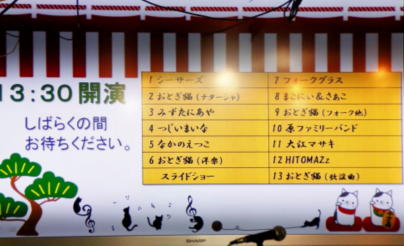 13:30 開演
しばらくの間
お待ちください。
1 シーザーズ
2 おとぎ猫 (ナターシャ)
3 みずたにあや
4 つじいまいな
5 なかのえつこ
6 おとぎ猫 (洋楽)
スライドショー
7 フォークグラス
8 まこにい&さあこ
9 おとぎ猫 (フォーク他)
10 原ファミリーバンド
11 大江マサキ
12 HITOMAZz
13 おとぎ猫 (歌謡曲)
SHARP